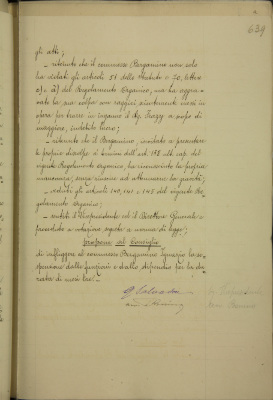 639
gli atti;
_ ritenuto che il commesso Bergamino non solo
ha violati gli articoli 51 dello Statuto e 70, lettere
e) del Regolamento Organico, ma ha aggra-
vato la sua colpa con raggiri messi in
opera per trarre in inganno il Sig. a scopo di
maggiore, indebito lucro;
_ ritenuto che il Bergamino, invitato a presentare
le proprie discolpe ai sensi dell'art. 148 del
vigente Regolamento Organico, ha riconosciuto la propria
mancanza, senza riuscire ad attenuarne la gravità;
_ veduti gli articoli 140, 141 e 145 del vigente Re-
golamento Organico;
_ sentiti il Vicepresidente ed il Direttore Generale e
proceduto a votazione segreta a norma di legge;
propone al Consiglio
di infliggere al commesso Bergamino Ignazio la so-
spensione dalle funzioni e dallo stipendio per la du-
rata di mesi tre._